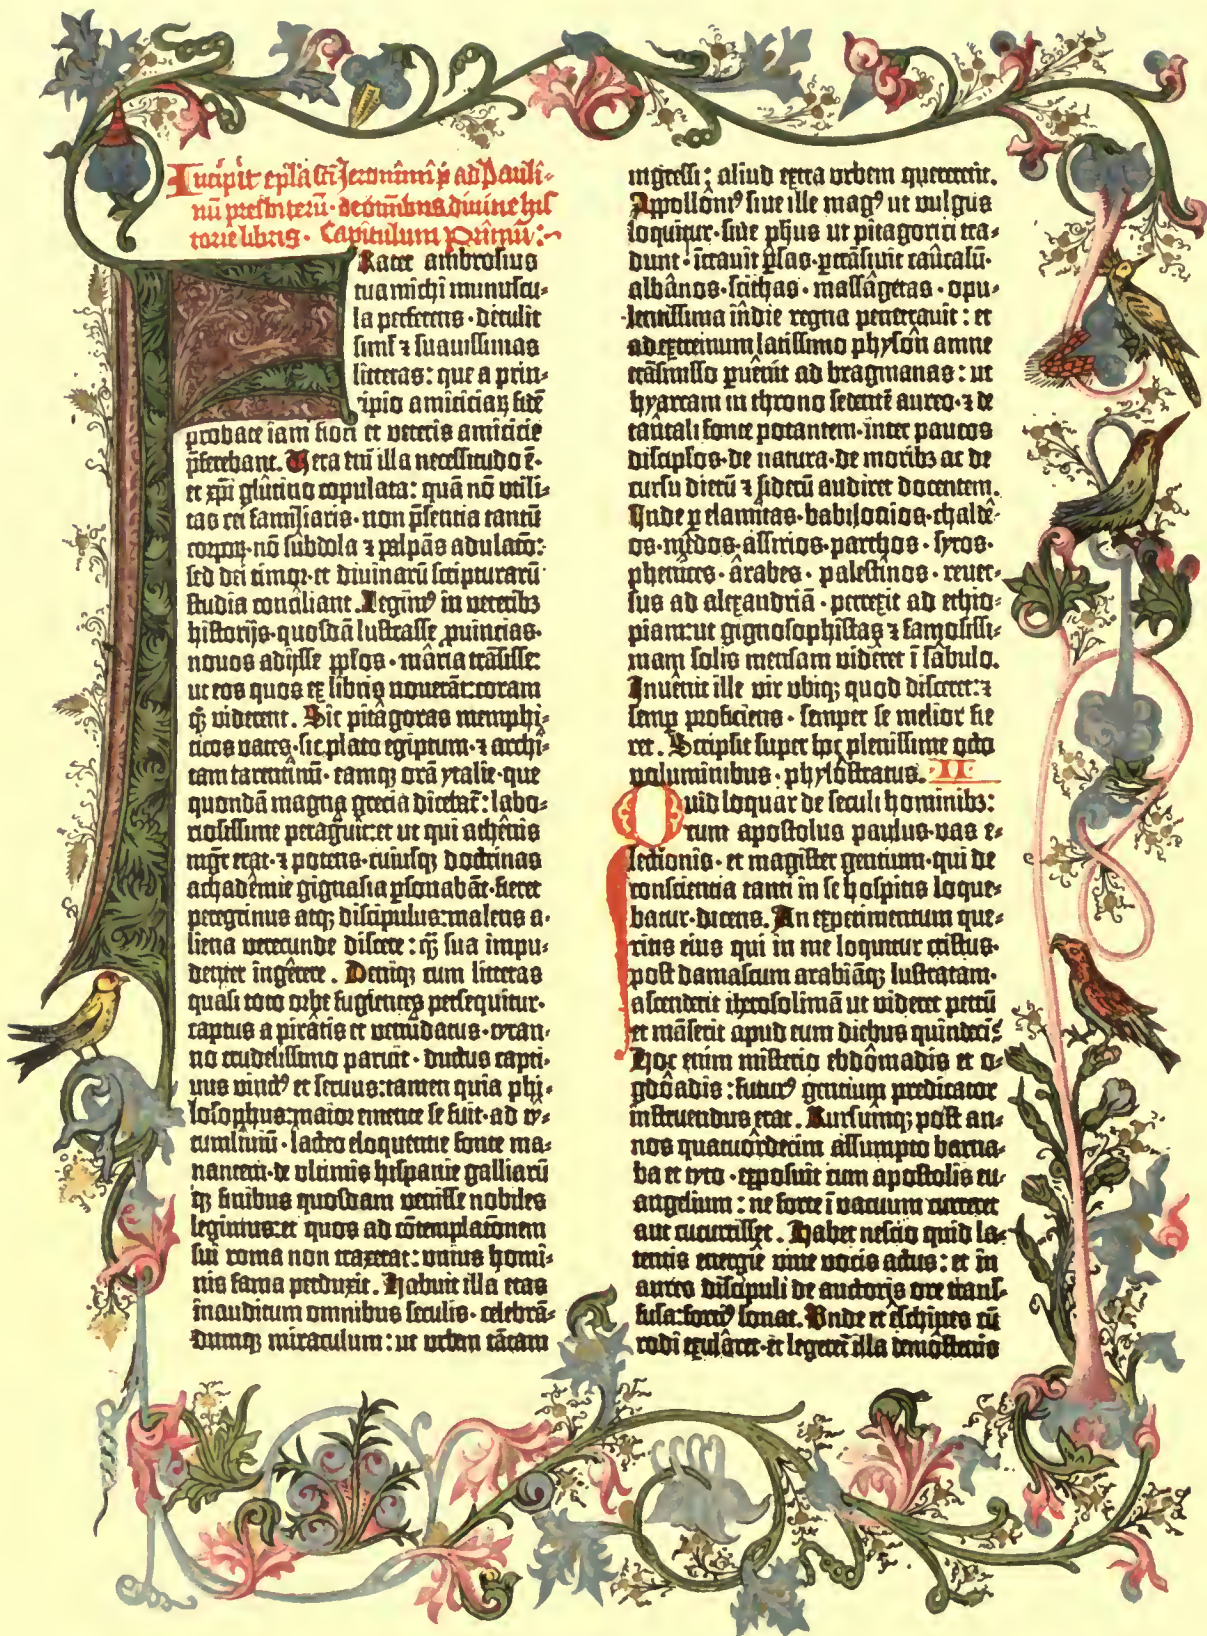 Incipit epl̃a sc̃i Jeronimi p̃ ad Pauli-
nũ presbiterũ · de om̃ibus diuine his
torie libris · Capitulum Primũ:~
Frater ambrosius
tua michi munuscu-
la perferens · detulit
sim̃l ⁊ suauissimas
litteras: que a prin-
cipio amiciciaꝝ fidẽ
probate iam fidei et veteris amicicie
p̃ferebant. Vera eni̅ illa necessitudo ẽ·
et xp̃i glutino copulata: quã nõ vtili-
tas rei familiaris · non p̃sentia tantũ
corpoꝝ · nõ subdola ⁊ palpãs adulatõ:
sed dei timor · et diuinarũ scripturarũ
studia conciliant. Legim⁹ in veteribꝫ
historijs · quosdã lustrasse ꝓuincias·
nouos adijsse ppl̃os · maria trãsisse:
ut eos quos ex libris nouerãt: coram
qꝫ viderent. Sic pitagoras memphi-
ticos vates · sic plato egiptum · ⁊ archi-
tam tarentinũ · eamqꝫ orã ytalie · que
quondã magna grecia dicebat̃: labo-
riosissime peragrauit: et ut qui athẽnis
mgr̃ erat · ⁊ potens · cuiusqꝫ doctrinas
achademie gignasia ꝑsonabãt · fieret
peregrinus atqꝫ discipulus: malens a-
liena verecunde discere: qꝫ sua impu-
denter ingerere. Deniqꝫ cum litteras
quasi toto orbe fugientes persequitur·
captus a piratis et venũdatus · tyran-
no crudelissimo paruit · ductus capti-
uus vinct⁹ et seruus: tamen quia phi-
losophus: maior emente se fuit · ad ti-
tumliuiũ · lacteo eloquentie fonte ma-
nantem · de vltimis hispanie galliarũ
qꝫ finibus quosdam venisse nobiles
legimus: et quos ad cõtemplatõnem
sui roma non traxerat: vnius homi-
nis fama perduxit. Habuit illa etas
inauditum omnibus seculis · celebrã-
dumqꝫ miraculum: ut urbem tãtam
ingressi: aliud extra vrbem quererent.
Appolloni⁹ siue ille mag⁹ ut vulgus
loquitur · siue ph̃us ut pitagorici tra-
dunt · ĩtrauit ꝑsas · ꝑtrãsiuit caucasũ·
albanos · scithas · massagetas · opu-
lentissima indie regna penetrauit: et
ad extremum latissimo physon amne
trãsmisso ꝑuenit ad bragmanas: ut
hyarcam in throno sedentẽ aureo · ⁊ de
tantali fonte potantem · inter paucos
discipl̃os · de natura · de moribꝫ ac de
cursu dierũ ⁊ siderũ audiret docentem.
Inde ꝑ elamitas · babilonios · chalde-
os · medos · assirios · parthos · syros·
phenices · arabes · palestinos · reuer-
sus ad alexandriã · perrexit ad ethio-
piam: ut gignosophistas ⁊ famosissi-
mam solis mensam videret ĩ sabulo.
Inuenit ille vir vbiqꝫ quod disceret: ⁊
semꝑ proficiens · semper se melior fie
ret. Scripsit super hoc plenissime octo
voluminibus · phylostratus. II
Quid loquar de seculi hominibꝫ:
cum apostolus paulus · vas e-
lectionis · et magister gentium · qui de
conscientia tanti in se hospitis loque-
batur · dicens. An experimentum que-
ritis eius qui in me loquitur cristus·
post damascum arabiãqꝫ lustratam·
ascenderit iherosolimã ut videret petrũ
et mãserit apud eum diebus quindecĩ:
Hoc enim misterio ebdomadis et o-
gdoadis: futur⁹ gentium predicator
instruendus erat. Rursumqꝫ post an-
nos quatuordecim assumpto barna-
ba et tyto · exposuit cum apostolis eu-
angelium: ne forte ĩ vacuum curreret
aut cucurrisset. Habet nescio quid la-
tentis energie viue vocis actus: et in
aures discipuli de auctoris ore trans-
fusa: forci⁹ sonat. Vnde et eschines cũ
rodi exularet · et legeret̃ illa demostenis